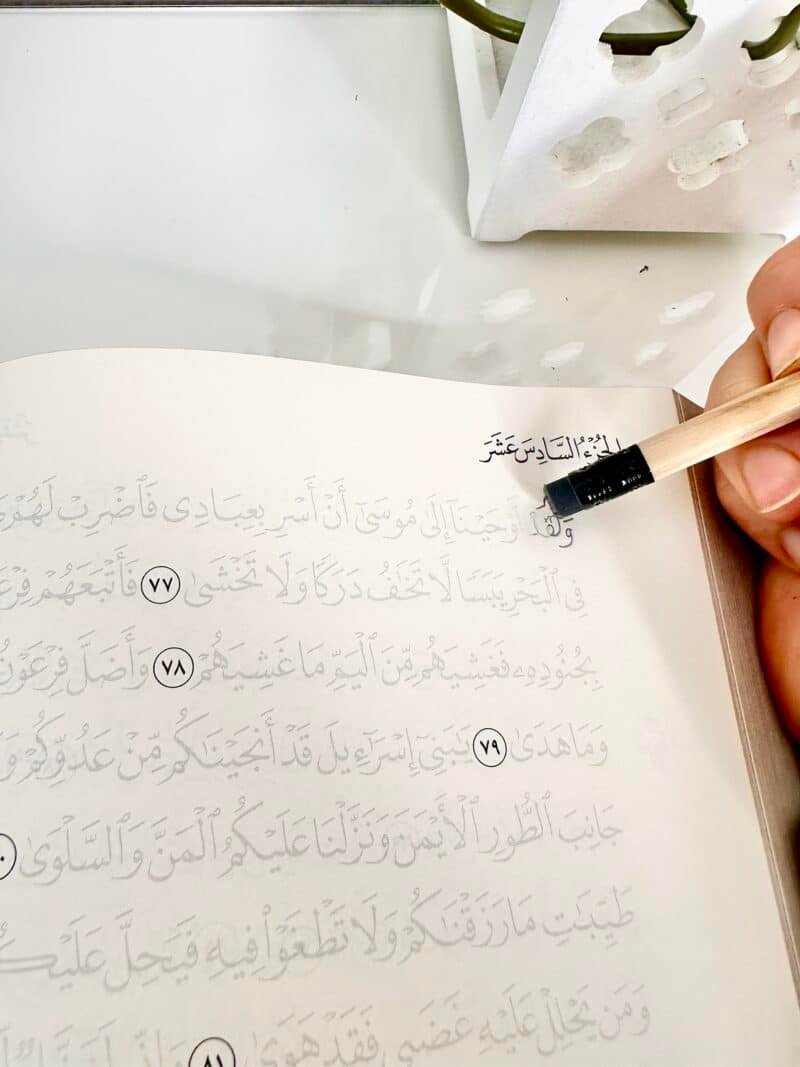 الجُزْءُ السَّادِسَ عَشَرَ
وَلَقَدْ أَوْحَيْنَآ إِلَىٰ مُوسَىٰٓ أَنْ أَسْرِ بِعِبَادِى فَٱضْرِبْ لَهُمْ
فِى ٱلْبَحْرِ يَبَسًا لَّا تَخَٰفُ دَرَكًا وَلَا تَخْشَىٰ ٧٧ فَأَتْبَعَهُمْ
بِجُنُودِهِۦ فَغَشِيَهُم مِّنَ ٱلْيَمِّ مَا غَشِيَهُمْ ٧٨ وَأَضَلَّ فِرْعَوْنُ
وَمَا هَدَىٰ ٧٩ يَٰبَنِىٓ إِسْرَٰٓءِيلَ قَدْ أَنجَيْنَٰكُم مِّنْ عَدُوِّكُمْ
جَانِبَ ٱلطُّورِ ٱلْأَيْمَنَ وَنَزَّلْنَا عَلَيْكُمُ ٱلْمَنَّ وَٱلسَّلْوَىٰ
طَيِّبَٰتِ مَا رَزَقْنَٰكُمْ وَلَا تَطْغَوْا۟ فِيهِ فَيَحِلَّ
وَمَن يَحْلِلْ عَلَيْهِ غَضَبِى فَقَدْ هَوَىٰ ٨١